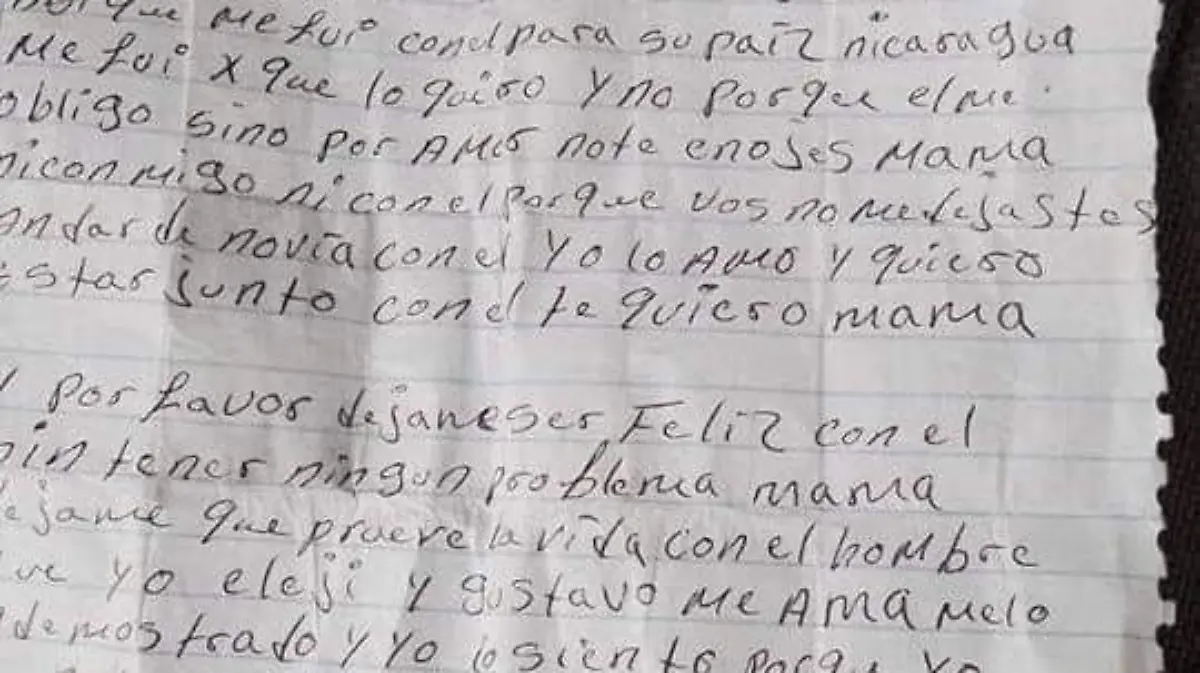 que me fui con el para su paiz nicaragua
Me fui x que lo quiero y no porque el me
obligo sino por AMor note enojes Mama
niconmigo ni con el porque vos no me dejastes
andar de novia con el yo lo AMO y quiero
estar junto con el te quiero mama
y por favor dejame ser Feliz con el
sin tener ningun problema mama
dejame que prueve la vida con el hombre
que yo eleji y gustavo Me AMA Melo
demostrado y yo lo siento porque yo